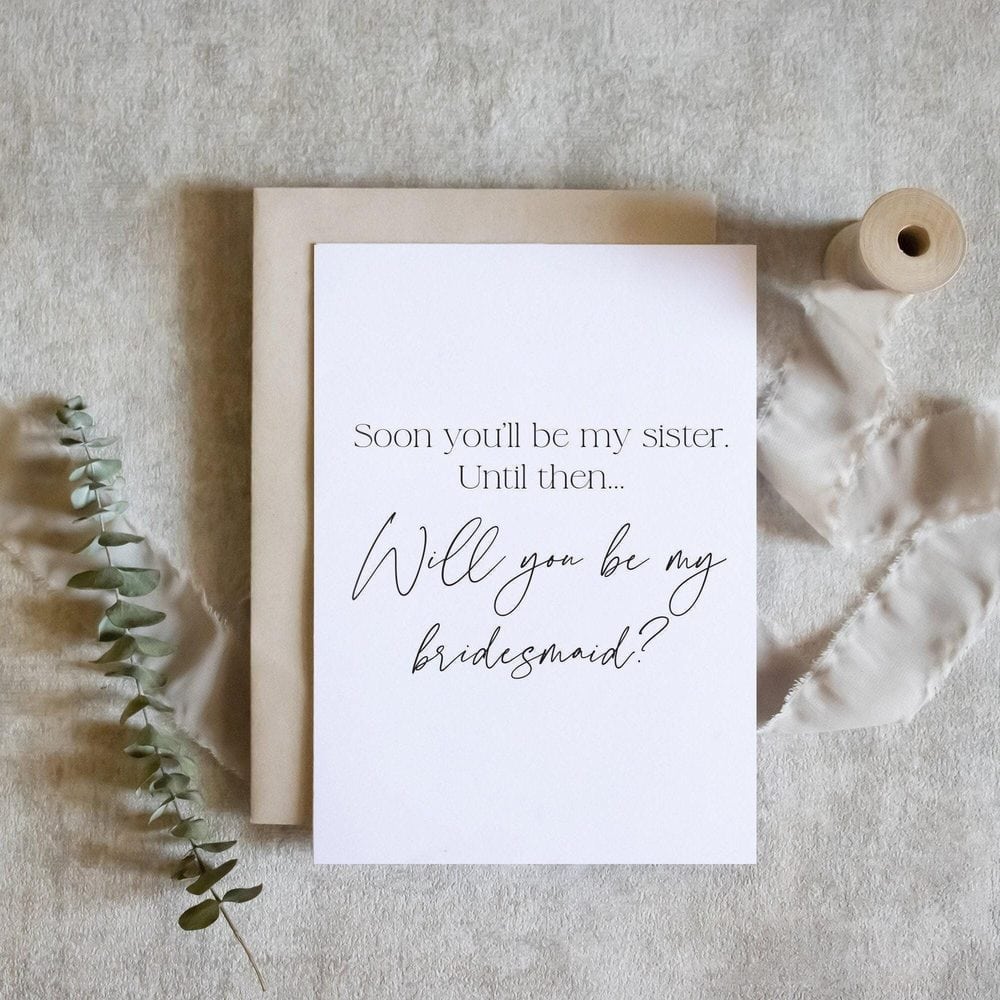 Soon you'll be my sister.
Until then...
Will you be my
bridesmaid?